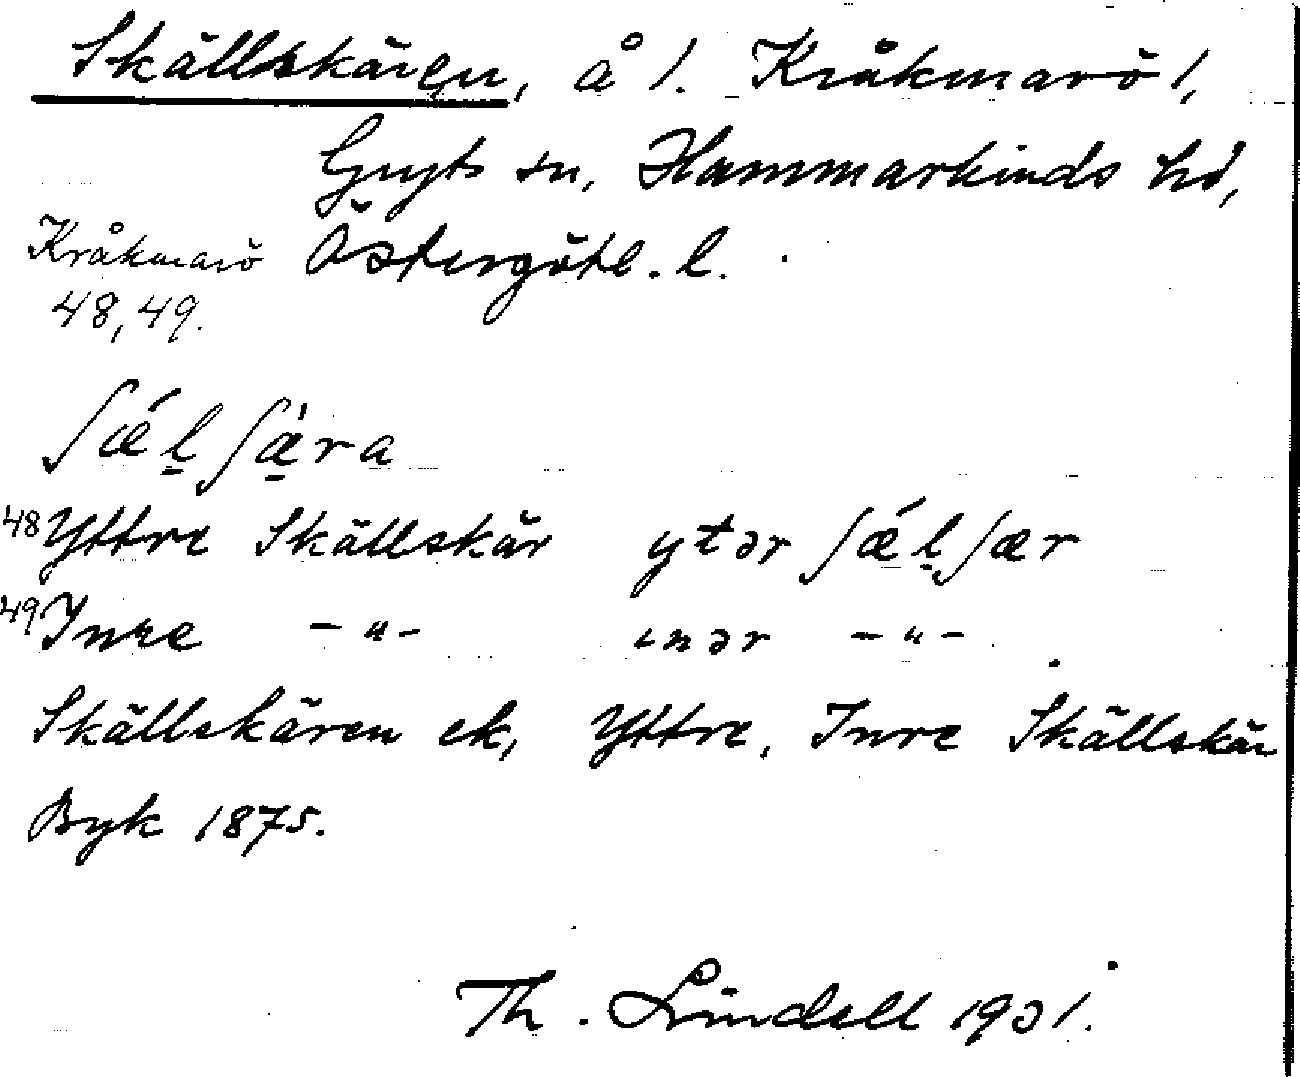 Skällskären, å l. Kråkmarö l,
Gryts sn, Hammarkinds hd,
Kråkmarö Östergötl. l.
48, 49.
ʃǽl̠ʃæ̠̀ra
48 Yttre Skällskär ytər ʃǽl̠ʃær
49 Inre -"- ɩnər -"-
Skällskären ek, Yttre, Inre Skällskär
Byk 1875.
Th. Lindell 1931.